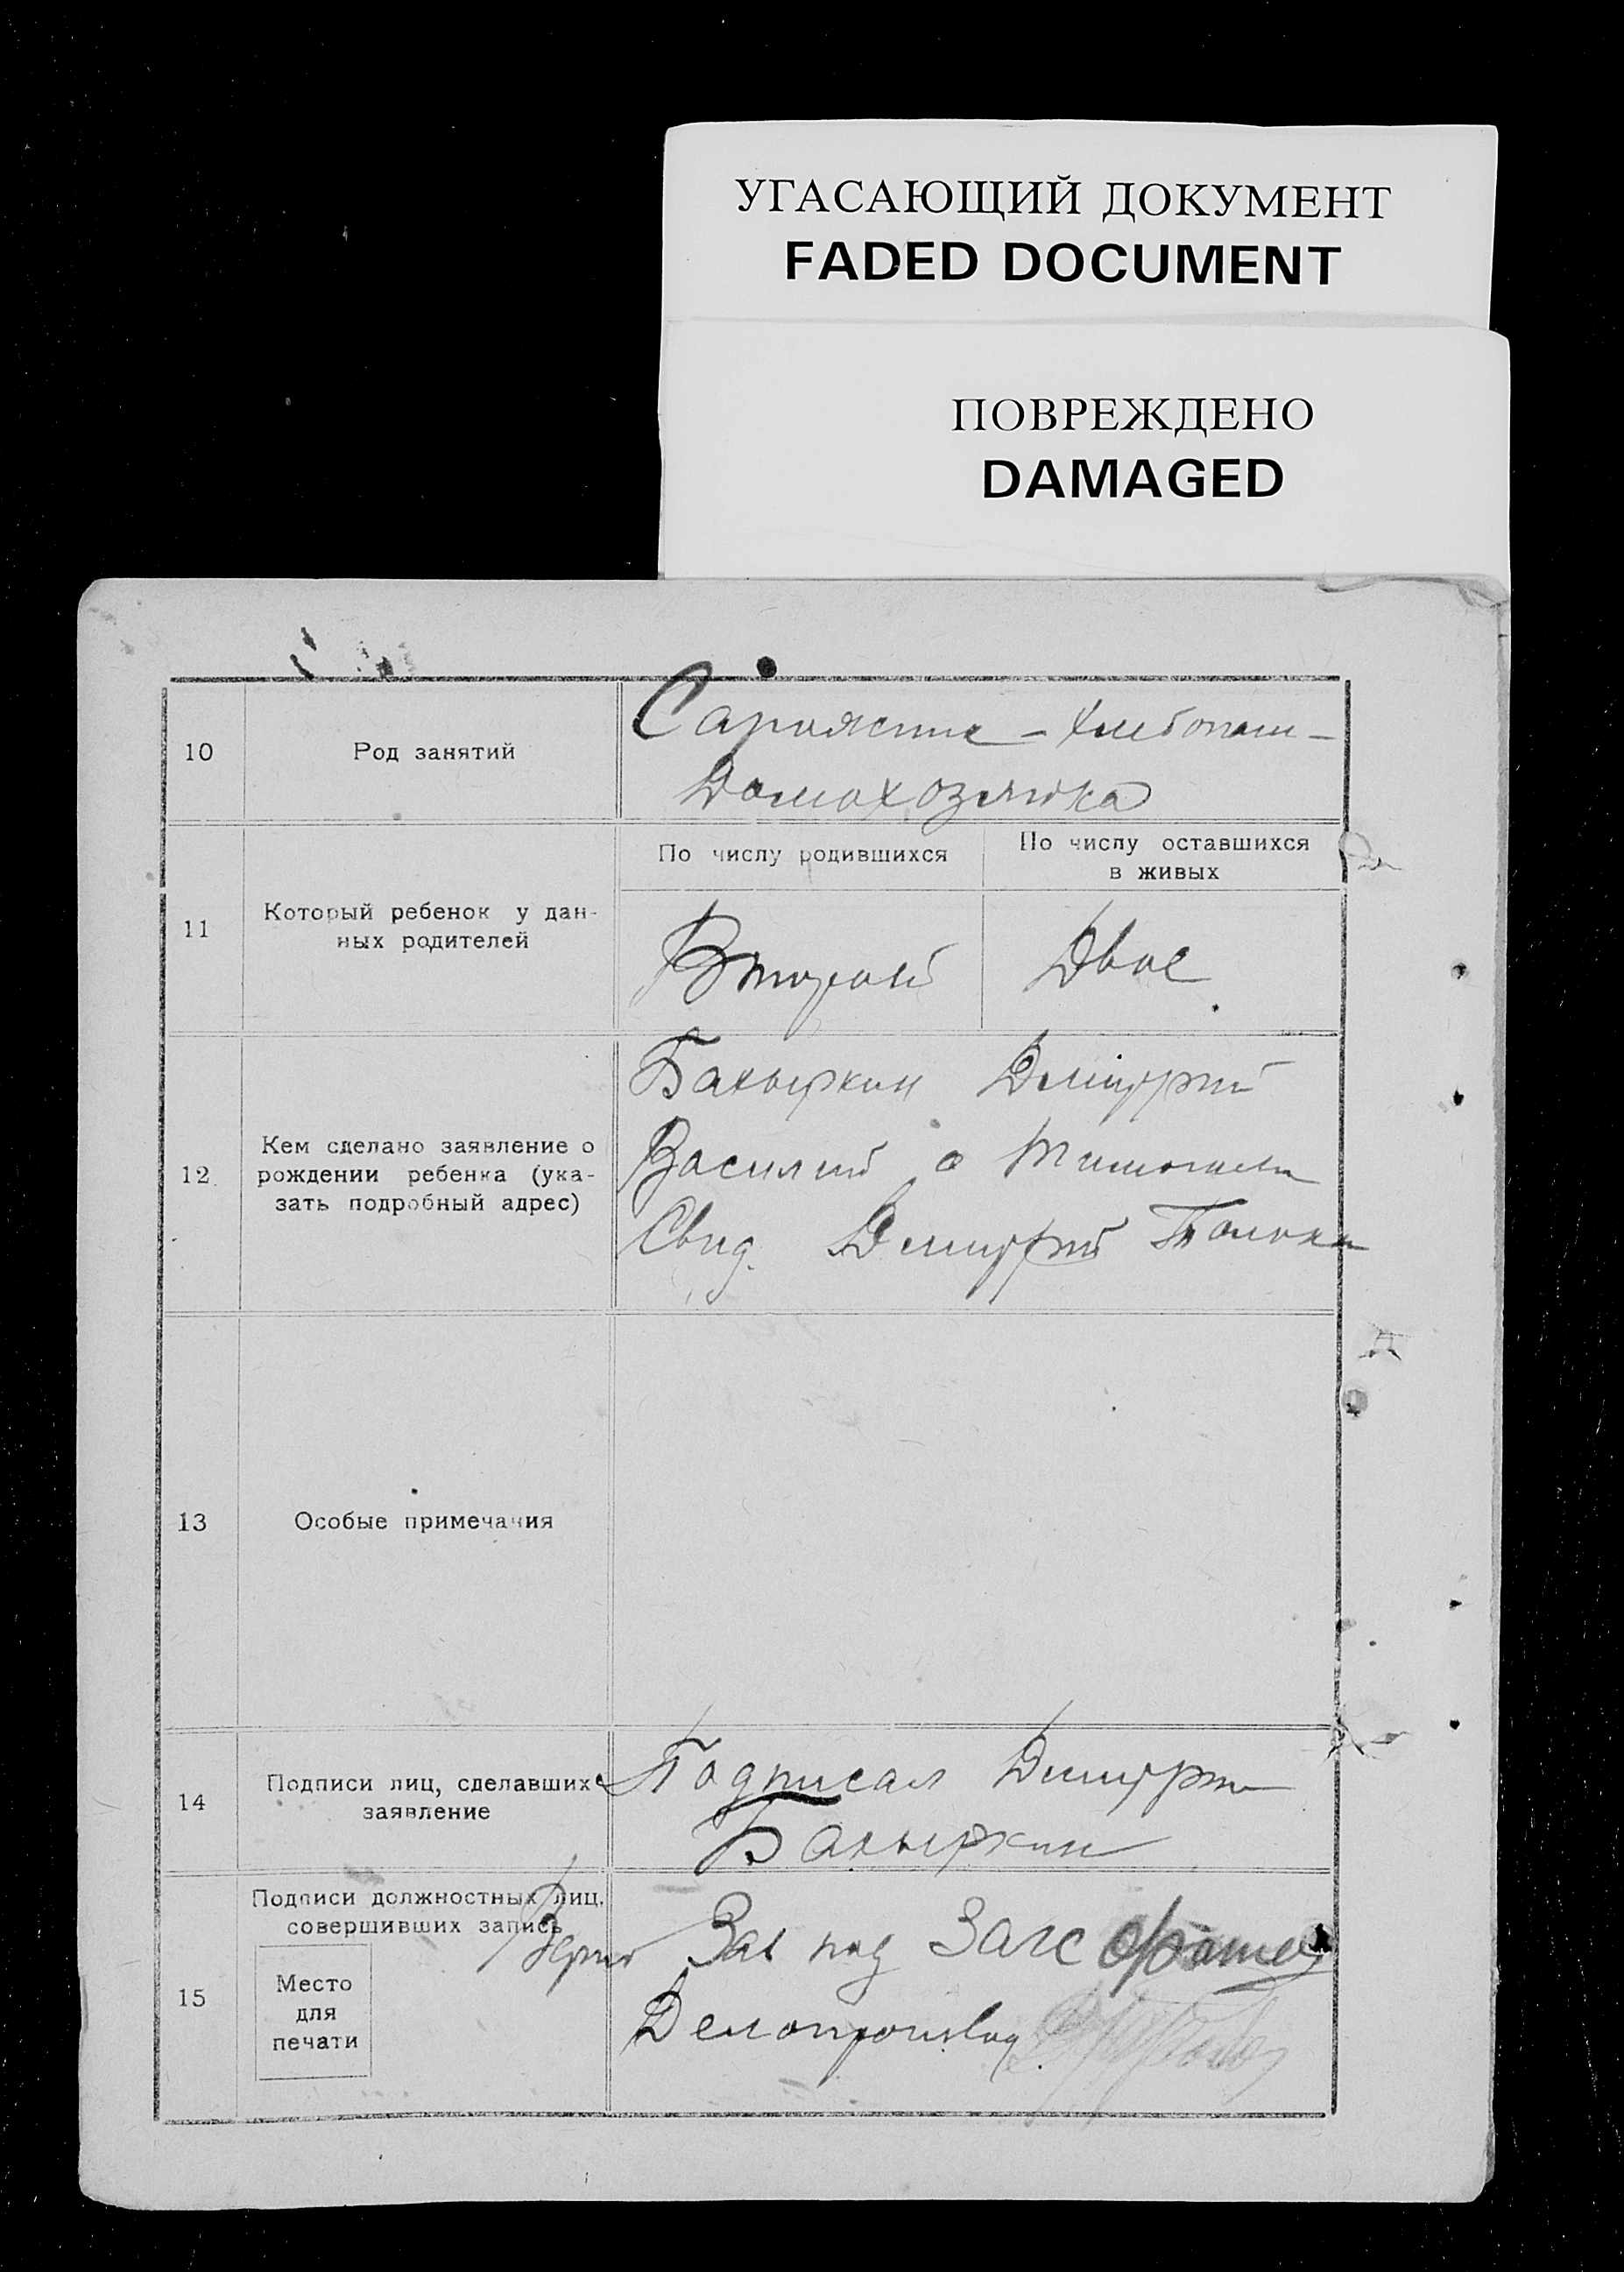 УГАСАЮЩИЙ ДОКУМЕНТ
FADED DOCUMENT
ПОВРЕЖДЕНО
DAMAGED
10
Род занятий
Домохозяйка
11
Который ребенок у дан-
ных родителей
По числу родившихся
По числу оставшихся
в живых
Второй
Двое
12
Кем сделано заявление о
рождении ребенка (ука-
зать подробный адрес)
Бахыркин Дмитрий
Василий
Свид. Дмитрий
13
Особые примечания
14
Подписи лиц, сделавших
заявление
Подписал Дмитрий
Бахыркин
15
Подписи должностных лиц,
совершивших запись
Место
для
печати
Верно Зав под Загс
Делопроизвод.